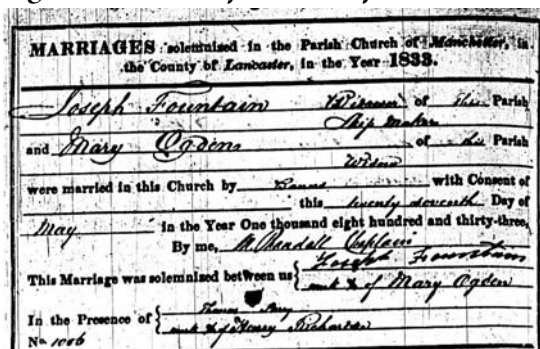 MARRIAGES solemnized in the Parish Church of Manchester, in
the County of Lancaster, in the Year 1833.
Joseph Fountain of this Parish
Maker
and Mary Ogden of this Parish
Widow
were married in this Church by Banns with Consent of
this twenty seventh Day of
May in the Year One thousand eight hundred and thirty-three,
By me, Chaplain
This Marriage was solemnized between us { Joseph Fountain
mark x of Mary Ogden
In the Presence of {
mark x of Henry Richardson
No. 1006